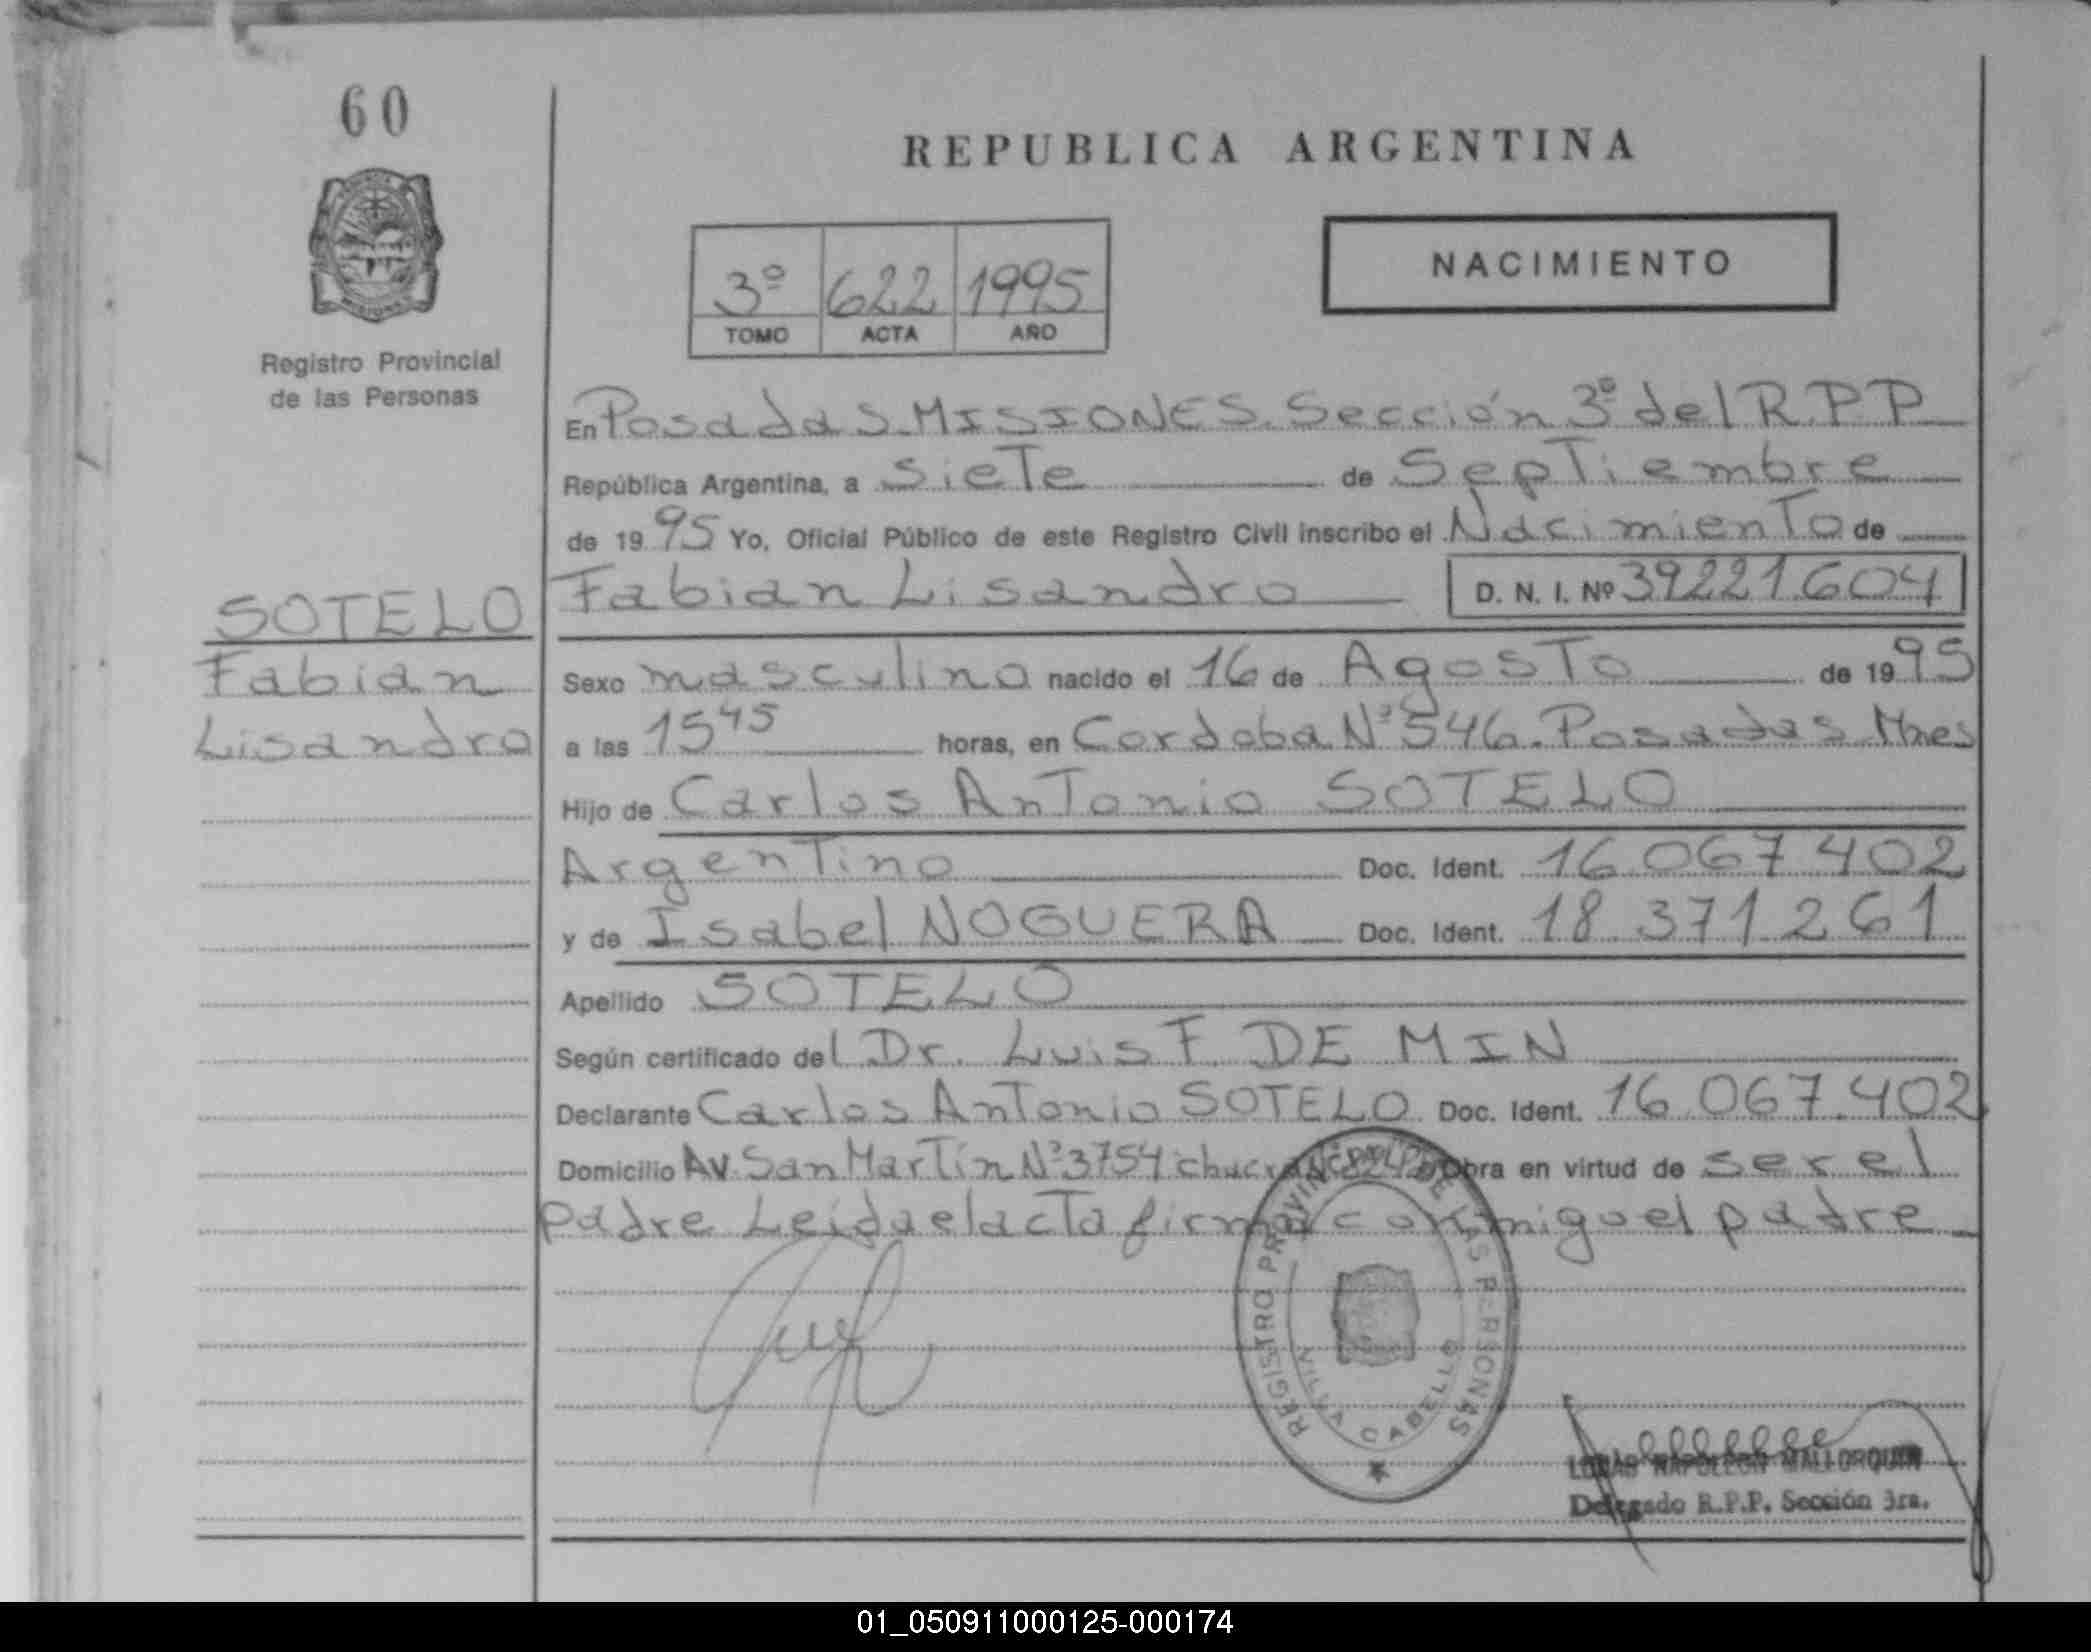 60
REPUBLICA ARGENTINA
3º 622 1995
TOMO ACTA AÑO
NACIMIENTO
Registro Provincial
de las Personas
En Posadas. MISIONES. Sección 3º del R.P.P
República Argentina, a Siete de Septiembre
de 1995 Yo, Oficial Público de este Registro Civil inscribo el Nacimiento de
SOTELO
Fabian
Lisandro
Fabian Lisandro D. N. I. Nº 39221.604
Sexo masculino nacido el 16 de Agosto de 1995
a las 15 45 horas, en Cordoba Nº 546. Posadas Mnes
Hijo de Carlos Antonio SOTELO
Argentino Doc. Ident. 16.067.402
y de Isabel NOGUERA Doc. Ident. 18.371.261
Apellido SOTELO
Según certificado del Dr. Luis F. DE MIN
Declarante Carlos Antonio SOTELO Doc. Ident. 16.067.402
Domicilio Av. San Martín Nº 3754 Obra en virtud de ser el
padre Leida el acta firma conmigo el padre
REGISTRO PROVINCIAL DE LAS PERSONAS
VILLA CABELLO
NAPOLEON MALLORQUIN
Delegado R.P.P. Sección 3ra.
01_050911000125-000174